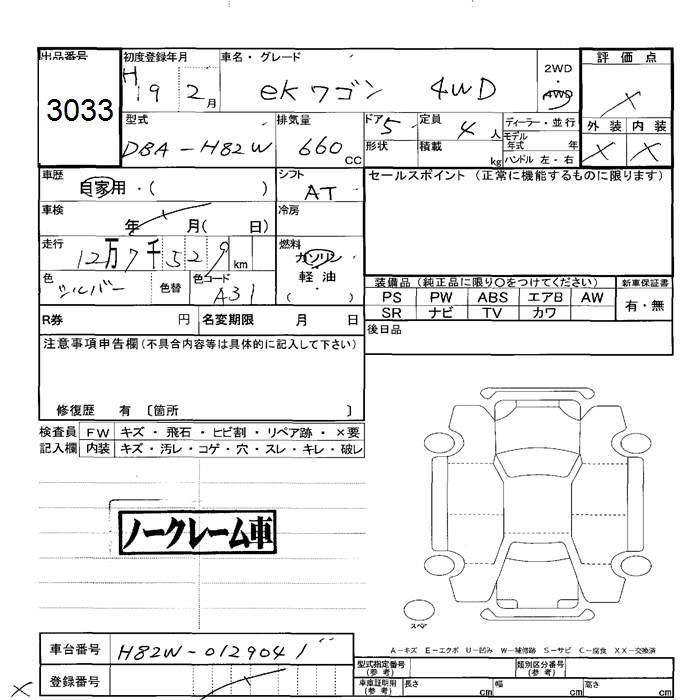 出品番号 初度登録年月 車名・グレード 評価点
3033 H19 2月 ekワゴン 4WD 2WD・4WD ×
外装 内装
× ×
型式 排気量 ドア 5 定員 4人 ディーラー・並行
DBA-H82W 660CC 形状 積載 kg モデル年式 年
ハンドル 左・右
車歴 シフト セールスポイント (正常に機能するものに限ります)
自家用・( ) AT
車検 冷房
年 月( 日)
走行 燃料
12万7千529km ガソリン
軽・油
( )
色 色替 色コード
シルバー A31
装備品 (純正品に限り○をつけてください) 新車保証書
PS PW ABS エアB AW 有・無
SR ナビ TV カワ
R券 円 名変期限 月 日
後日品
注意事項申告欄(不具合内容等は具体的に記入して下さい)
修復歴 有 〔箇所 〕
検査員 FW キズ・飛石・ヒビ割・リペア跡・×要
記入欄 内装 キズ・汚レ・コゲ・穴・スレ・キレ・破レ
ノークレーム車
スペア
A-キズ E-エクボ U-凹み W-補修跡 S-サビ C-腐食 XX-交換済
車台番号 H82W-0129041
登録番号
型式指定番号(参考) 類別区分番号(参考)
車庫証明用(参考) 長さ cm 幅 cm 高さ cm
×